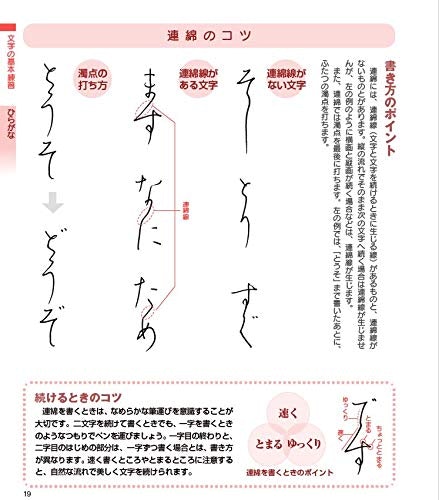 連綿のコツ
文字の基本練習
ひらがな
書き方のポイント
連綿には、連綿線（文字と文字を続けるときに生じる線）があるものと、連綿線が
ないものとがあります。縦の流れでそのまま次の文字へ続く場合は連綿線が生じませ
んが、左の例のように横画と縦画が続く場合などは、連綿線が生じます。
また、連綿では濁点を最後に打ちます。左の例では、「とうそ」まで書いたあとに、
ふたつの濁点を打ちます。
連綿線が
ない文字
とり
すぐ
連綿線が
ある文字
ます
なに
ため
連綿線
濁点の
打ち方
とうそ
どうぞ
続けるときのコツ
連綿を書くときは、なめらかな筆運びを意識することが
大切です。二文字を続けて書くときでも、一字を書くとき
のようなつもりでペンを運びましょう。一字目の終わりと、
二字目のはじめの部分は、一字ずつ書く場合とは、書き方
が異なります。速く書くところやとまるところに注意する
と、自然な流れで美しく文字を続けられます。
速く
とまる
ゆっくり
連綿を書くときのポイント
です
ちょっととまる
とまる
ゆっくり
速く
19